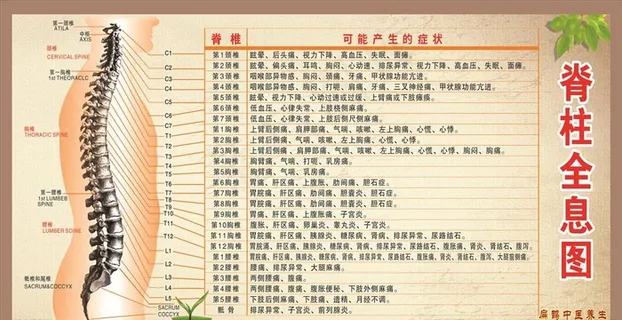 脊柱全息图
脊椎 可能产生的症状
第1颈椎 眩晕、后头痛、视力下降、高血压、失眠、面瘫。
第2颈椎 眩晕、偏头痛、耳鸣、胸闷、心动速、排尿异常、视力下降、高血压、失眠、面瘫。
第3颈椎 咽喉部异物感、胸闷、颈痛、牙痛、甲状腺功能亢进。
第4颈椎 咽喉部异物感、胸闷、打呃、肩痛、牙痛、三叉神经痛、甲状腺功能亢进。
第5颈椎 眩晕、视力下降、心动过速或过缓、上臂痛或下肢瘫痪。
第6颈椎 低血压、心律失常、上肢桡侧麻痛。
第7颈椎 低血压、心律失常、上肢后侧尺侧麻痛。
第1胸椎 上臂后侧痛、肩胛部痛、气喘、咳嗽、左上胸痛、心慌、心悸。
第2胸椎 上臂后侧痛、气喘、咳嗽、左上胸痛、心慌、心悸。
第3胸椎 上臂后侧痛、肩胛部痛、气喘、咳嗽、左上胸痛、心慌、胸闷、心悸。
第4胸椎 胸臂痛、气喘、打呃、乳房痛。
第5胸椎 胸臂痛、气喘、乳房痛。
第6胸椎 胃痛、肝区痛、上腹胀、肋间痛、胆石症。
第7胸椎 胃痛、肝区痛、肋间痛、胆囊炎、胆石症。
第8胸椎 胃痛、肝区痛、肋间痛、胆囊炎、胆石症。
第9胸椎 胃痛、肝区痛、上腹胀痛、子宫炎。
第10胸椎 腹胀、肝区痛、卵巢炎、睾丸炎、子宫炎。
第11胸椎 胃脘痛、肝区痛、胰腺炎、糖尿病、肾病、排尿异常、尿路结石。
第12胸椎 胃脘痛、肝区痛、胰腺炎、糖尿病、肾病、排尿异常、尿路结石、腹胀痛、肾炎、肾结石、腹泻。
第2腰椎 腰痛、排尿异常、大腿麻痛。
第3腰椎 两侧腰痛、腹痛。
第4腰椎 两侧腰痛、腹痛、腹胀便秘、下肢外侧麻痛。
第5腰椎 下肢后侧麻痛、下腹痛、遗精、月经不调。
骶骨 排尿异常、子宫炎、前列腺炎。
第一颈椎
ATILA
中枢
AXIS
颈椎
CERVICAL SPINE
第一胸椎
1st THEORACLC
胸椎
THORACIC SPINE
第一腰椎
1st LUMBEB
SPINE
腰椎
LUMBER SOINE
骶椎和尾椎
SACRUM&COCCYX
C1
C2
C3
C4
C5
C6
C7
T1
T2
T3
T4
T5
T6
T7
T8
T9
T10
T11
T12
L1
L2
L3
L4
L5
SACRUM
COCCYX
扁鹊中医养生